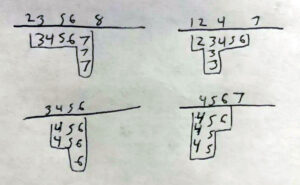 23 56 8
34567
7
7
12 4 7
23456
3
3
3456
456
456
6
4567
456
45
45